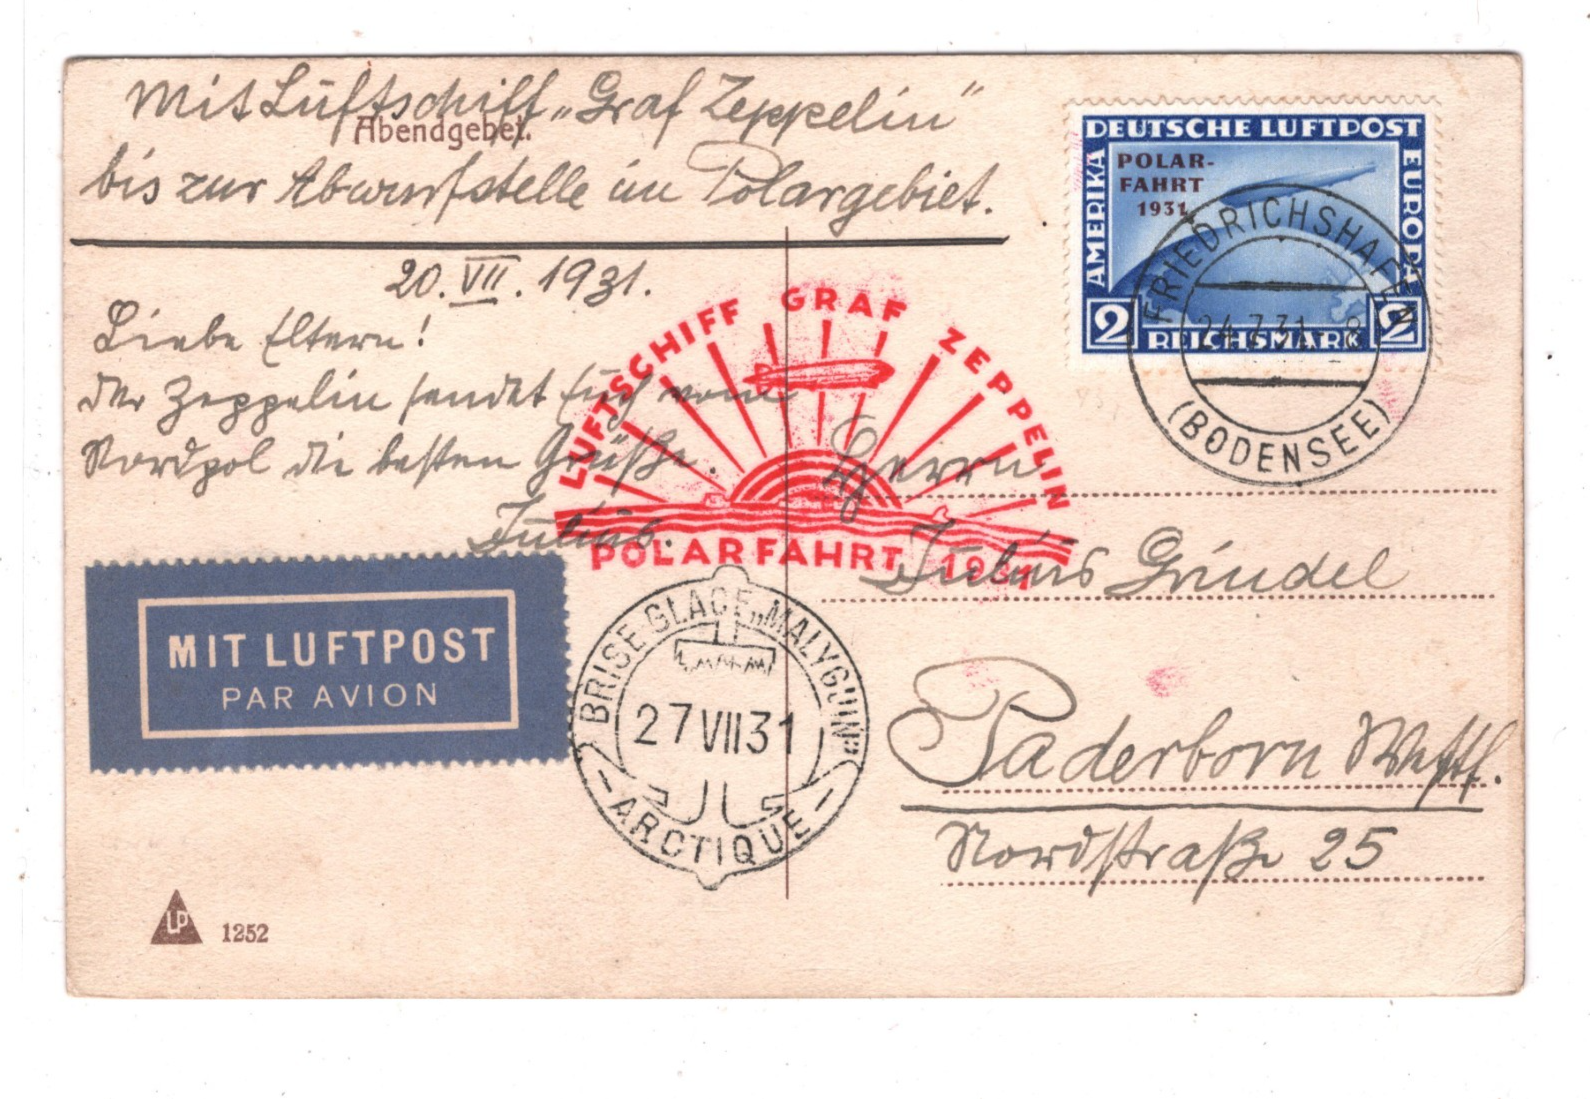 Mit Luftschiff „Graf Zeppelin“
Abendgebet.
bis zur Abwurfstelle im Polargebiet.
20. VII. 1931.
Liebe Eltern!
der Zeppelin sendet Euch vom
Nordpol die besten Grüße.
Julius.
DEUTSCHE LUFTPOST
AMERIKA
EUROPA
POLAR-
FAHRT
1931
2 2
REICHSMARK
FRIEDRICHSHAFEN
24.7.31. 8
(BODENSEE)
LUFTSCHIFF GRAF ZEPPELIN
POLARFAHRT 1931
Herrn
Julius Grindel
Paderborn Westf.
Nordstraße 25
MIT LUFTPOST
PAR AVION
BRISE GLACE „MALYGUIN“
27 VII 31
- ARCTIQUE -
LP 1252